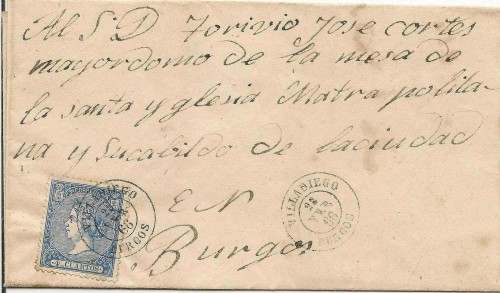 Al S D Torivio Jose cortes
mayordomo de la mesa de
la santa y yglesia Matra polila-
na y sucabildo de laciudad
EN
Burgos
VILLADIEGO
BURGOS
VILLADIEGO
BURGOS
4 CUARTOS